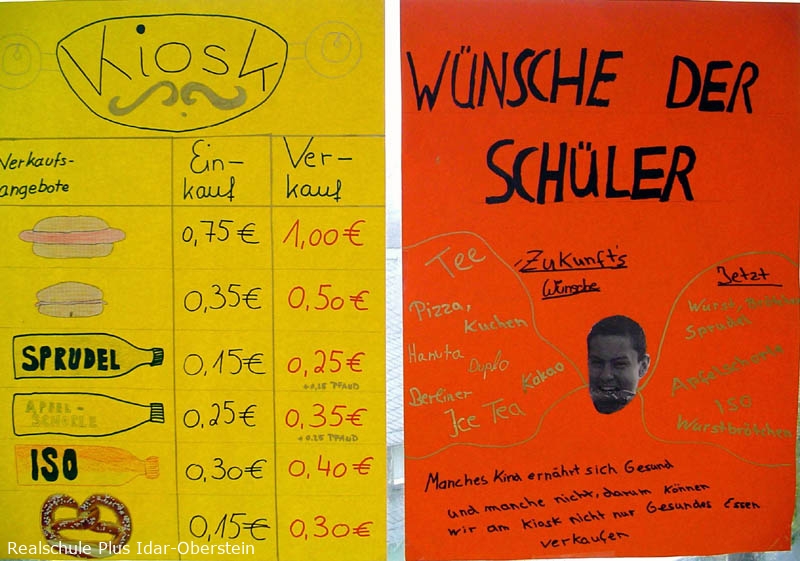 Kiosk
Verkaufs-
angebote
Ein-
kauf
Ver-
kauf
0,75€ 1,00€
0,35€ 0,50€
SPRUDEL 0,15€ 0,25€
+0,25 PFAND
APFEL-
SCHORLE 0,25€ 0,35€
+0.25 PFAND
ISO 0,30€ 0,40€
0,15€ 0,30€
Realschule Plus Idar-Oberstein
WÜNSCHE DER
SCHÜLER
Zukunft's
Wünsche
Tee
Pizza,
Kuchen
Hanuta
Duplo
Kakao
Berliner
Ice Tea
Jetzt
Wurst, Brötchen
Sprudel
Apfelschorle
ISO
Wurstbrötchen
Manches Kind ernährt sich Gesund
und manche nicht, darum können
wir am Kiosk nicht nur Gesundes Essen
verkaufen